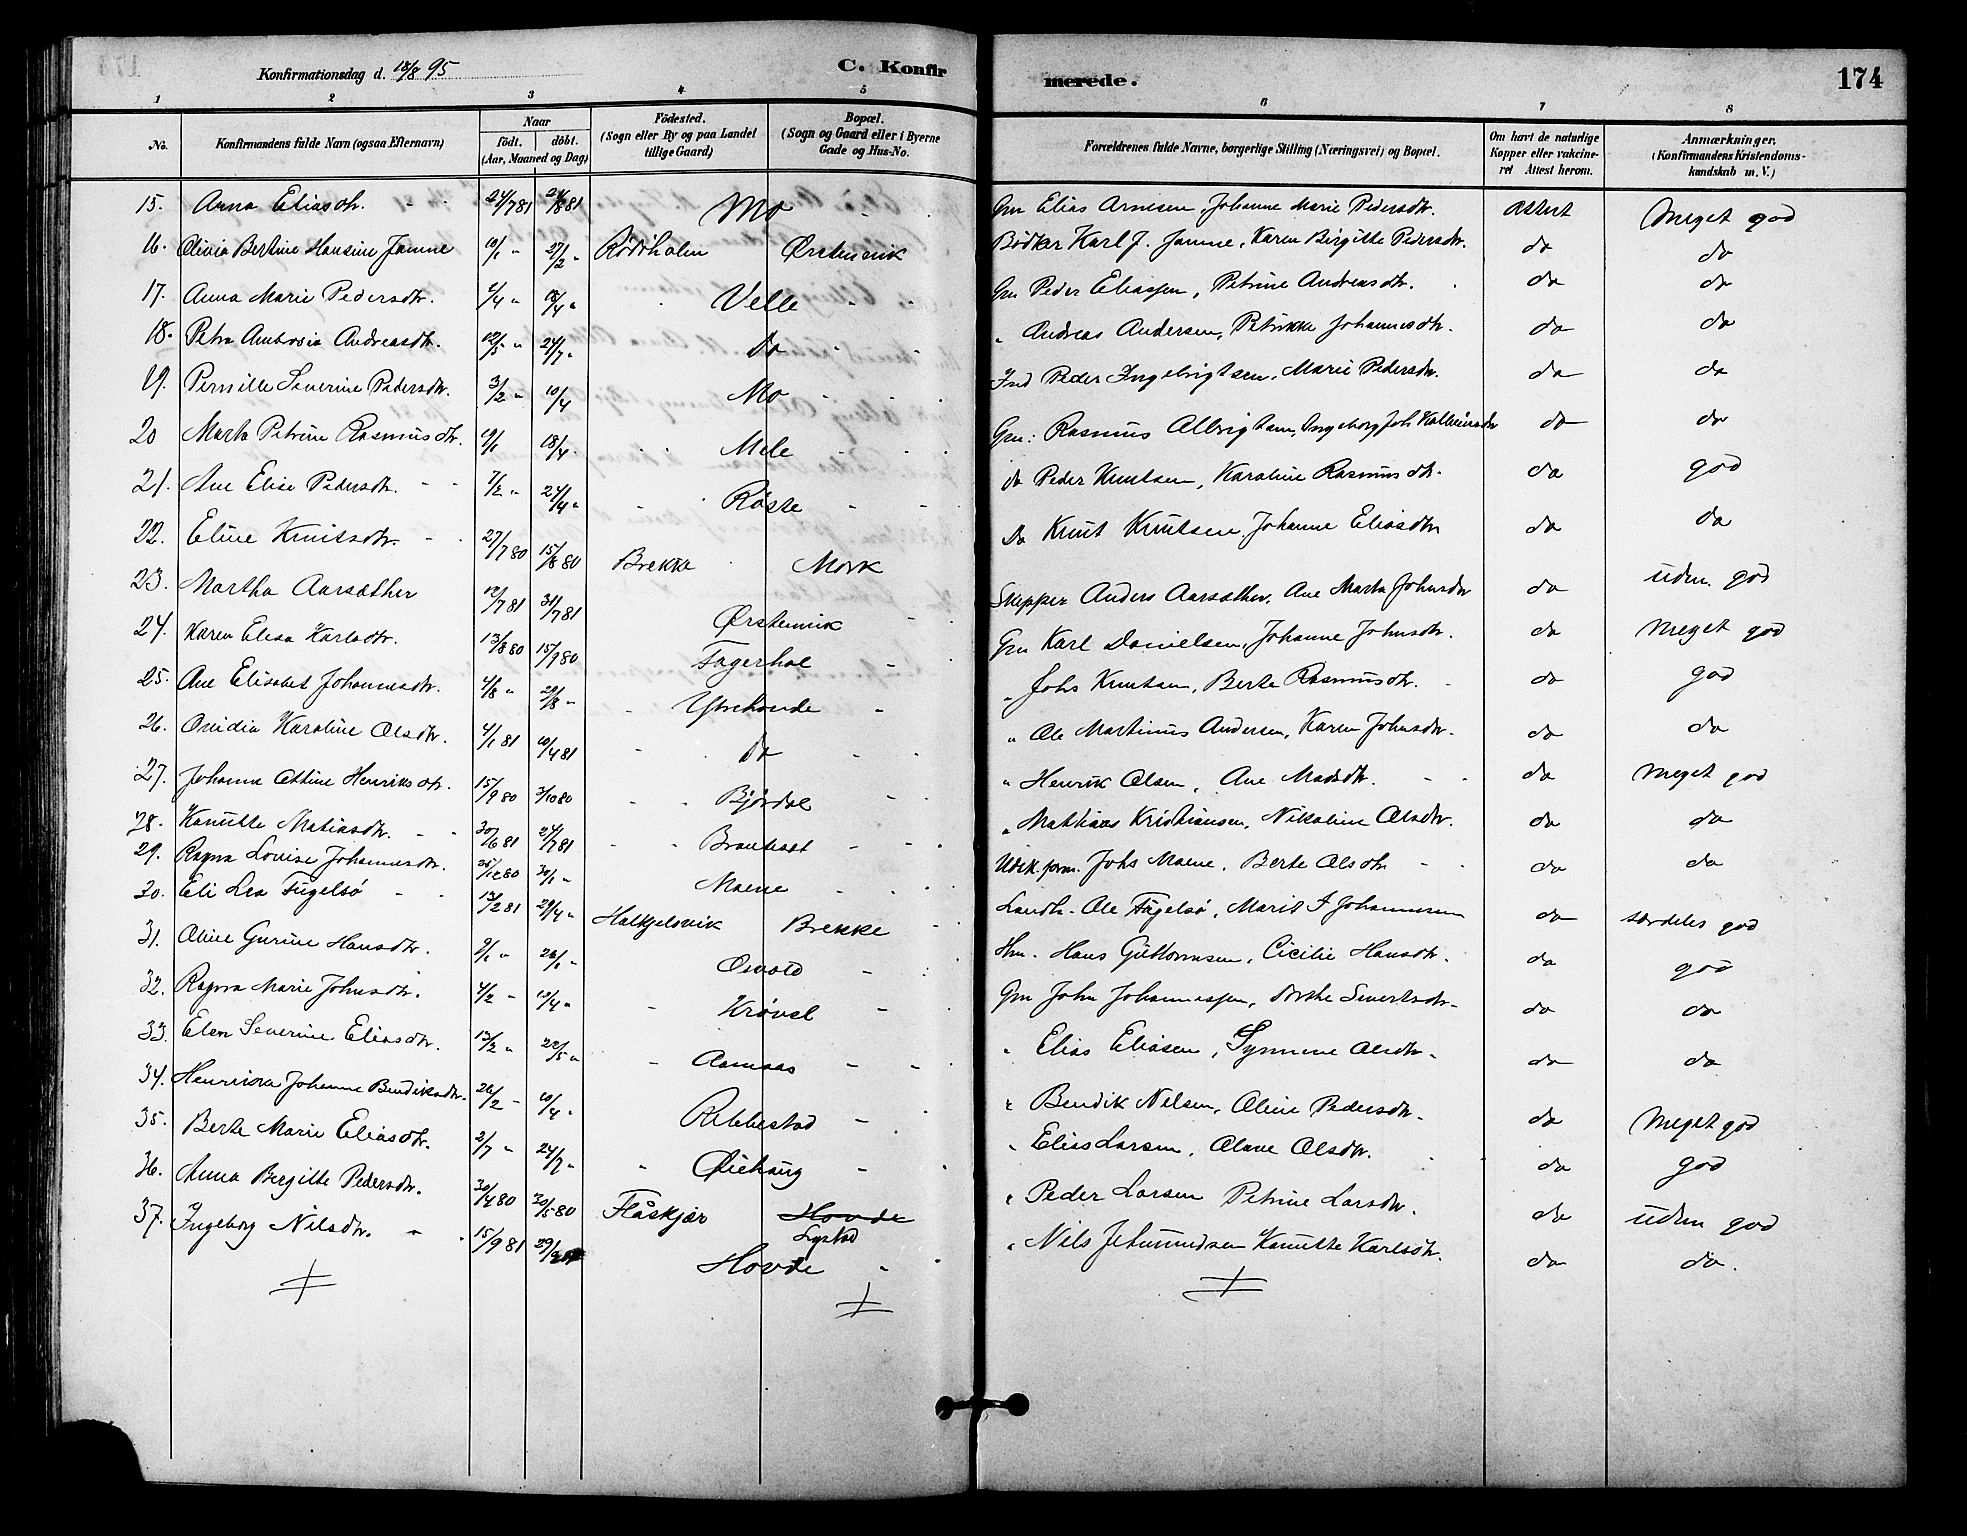 Konfirmationsdag d. 18/8 95 C. Konfir merede. 174
1 2 3 4 5 6 7 8
No. Konfirmandens fulde Navn (ogsaa Efternavn) Naar født. døbt. (Aar, Maaned og Dag) Fødested. (Sogn eller By og paa Landet tillige Gaard) Bopæl. (Sogn og Gaard eller i Byerne Gade og Hus-No. Forældrenes fulde Navne, borgerlige Stilling (Næringsvei) og Bopæl. Om havt de naturlige Kopper eller vakcineret Attest herom. Anmærkninger. (Konfirmandens Kristendomskundskab m. V.)
15. Anna Eliasdtr. 24/7 81 24/8 81 Mo Gm Elias Arnesen, Johanne Marie Pedersdtr. Attest Meget god
16. Olivia Bertine Hansine Jamne 10/1 " 27/2 " Rødsholm Ørstenvik Bødker Karl J. Jamne, Karen Birgitte Pedersdtr. do do
17. Anna Marie Pedersdtr. /4 " 18/4 " Velle Gm Peder Eliassen, Petrine Andreasdtr. do do
18. Petra Ambrosia Andreasdtr. 12/5 " 24/7 " Do " Andreas Andersen, Petrikke Johannesdtr. do do
19. Pernille Severine Pedersdtr. 3/2 " 10/4 Mo Ind Peder Ingebrigtsen, Marie Pedersdtr. do do
20 Marta Petrine Rasmusdtr. 19/1 18/4 Mele Gm: Rasmus Albrigtsen, Ingeborg Joh do do
21. Ane Elise Pedersdtr. 7/2 " 24/4 " Røste do Peder Knutsen, Karoline Rasmusdtr. do god
22. Eline Knutsdtr. 27/7 80 15/8 80 Brekke Mork Do Knut Knutsen, Johanne Eliasdtr do do
23. Martha Aarsæther 12/7 81 31/7 81 Ørstenvik Skipper Anders Aarsæther, Ane Marta Johnsdtr do udm. god
24. Karen Elisa Karlsdtr. 13/8 80 15/9 80 Fagerhol Gm Karl Danielsen, Johanne Johnsdtr. do Meget god
25. Ane Elisabet Johannesdtr. 4/8 " 29/8 " Ytrehovde " Johs Knutsen, Berte Rasmusdtr. do god
26. Ovidia Karoline Olsdtr. 4/1 81 10/4 81 Do " Ole Martinus Andersen, Karen Johnsdtr. do do
27. Johanna Ottine Henriksdtr. 15/9 80 3/10 80 Bjørdal " Henrik Olsen, Ane Madsdtr. do Meget god
28. Kanutte Matiasdtr. 30/6 81 24/7 81 " Mathias Kristiansen, Nikoline Olsdtr. do do
29. Ragna Louise Johannesdtr. 25/12 80 30/1 " Moene Johs Moene, Berte Olsdtr do do
30. Eli Lea Fugelsø 13/2 81 29/4 " Halkjelsvik Brekke Landh. Ole Fugelsø, Marit J Johannesen do særdeles god
31. Oline Gurine Hansdtr. 9/1 " 26/1 " Osvold Hm. Hans Guttormsen, Cicilie Hansdtr. do god
32. Ragna Marie Johnsdtr. 4/2 " 18/4 " Krøvel Gm John Johannessen, Dorthe Sivertsdtr do do
33. Elen Severine Eliasdtr. 13/2 " 22/5 " Aamaas " Elias Eliasen, Synnøve Olsdtr. do do
34. Henrikka Johanne Bendiksdtr. 26/2 " 10/4 " Ribbestad " Bendik Nilsen, Oline Pedersdtr. do Meget god
35. Berte Marie Eliasdtr. 2/7 " 24/7 " Øiehaug " Elias Larsen, Olave Olsdtr. do god
36. Anna Birgitte Pedersdtr. 30/4 80 30/5 80 Flåskjær Hovde Lystad " Peder Larsen Petrine Larsdtr. do udm god
37. Ingeborg Nilsdtr. 15/9 81 29/9 Hovde " Nils Kanutte Karlsdtr. do do.